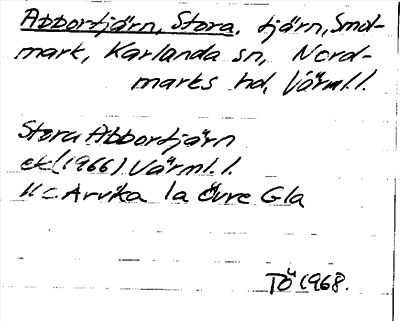 Abbortjärn, Stora, tjärn, Smol-
mark, Karlanda sn, Nord-
marks hd, Värml.l.
Stora Abbortjärn
ek (1966) Värml.l.
11c Arvika 1a Övre Gla
TÖ 1968.